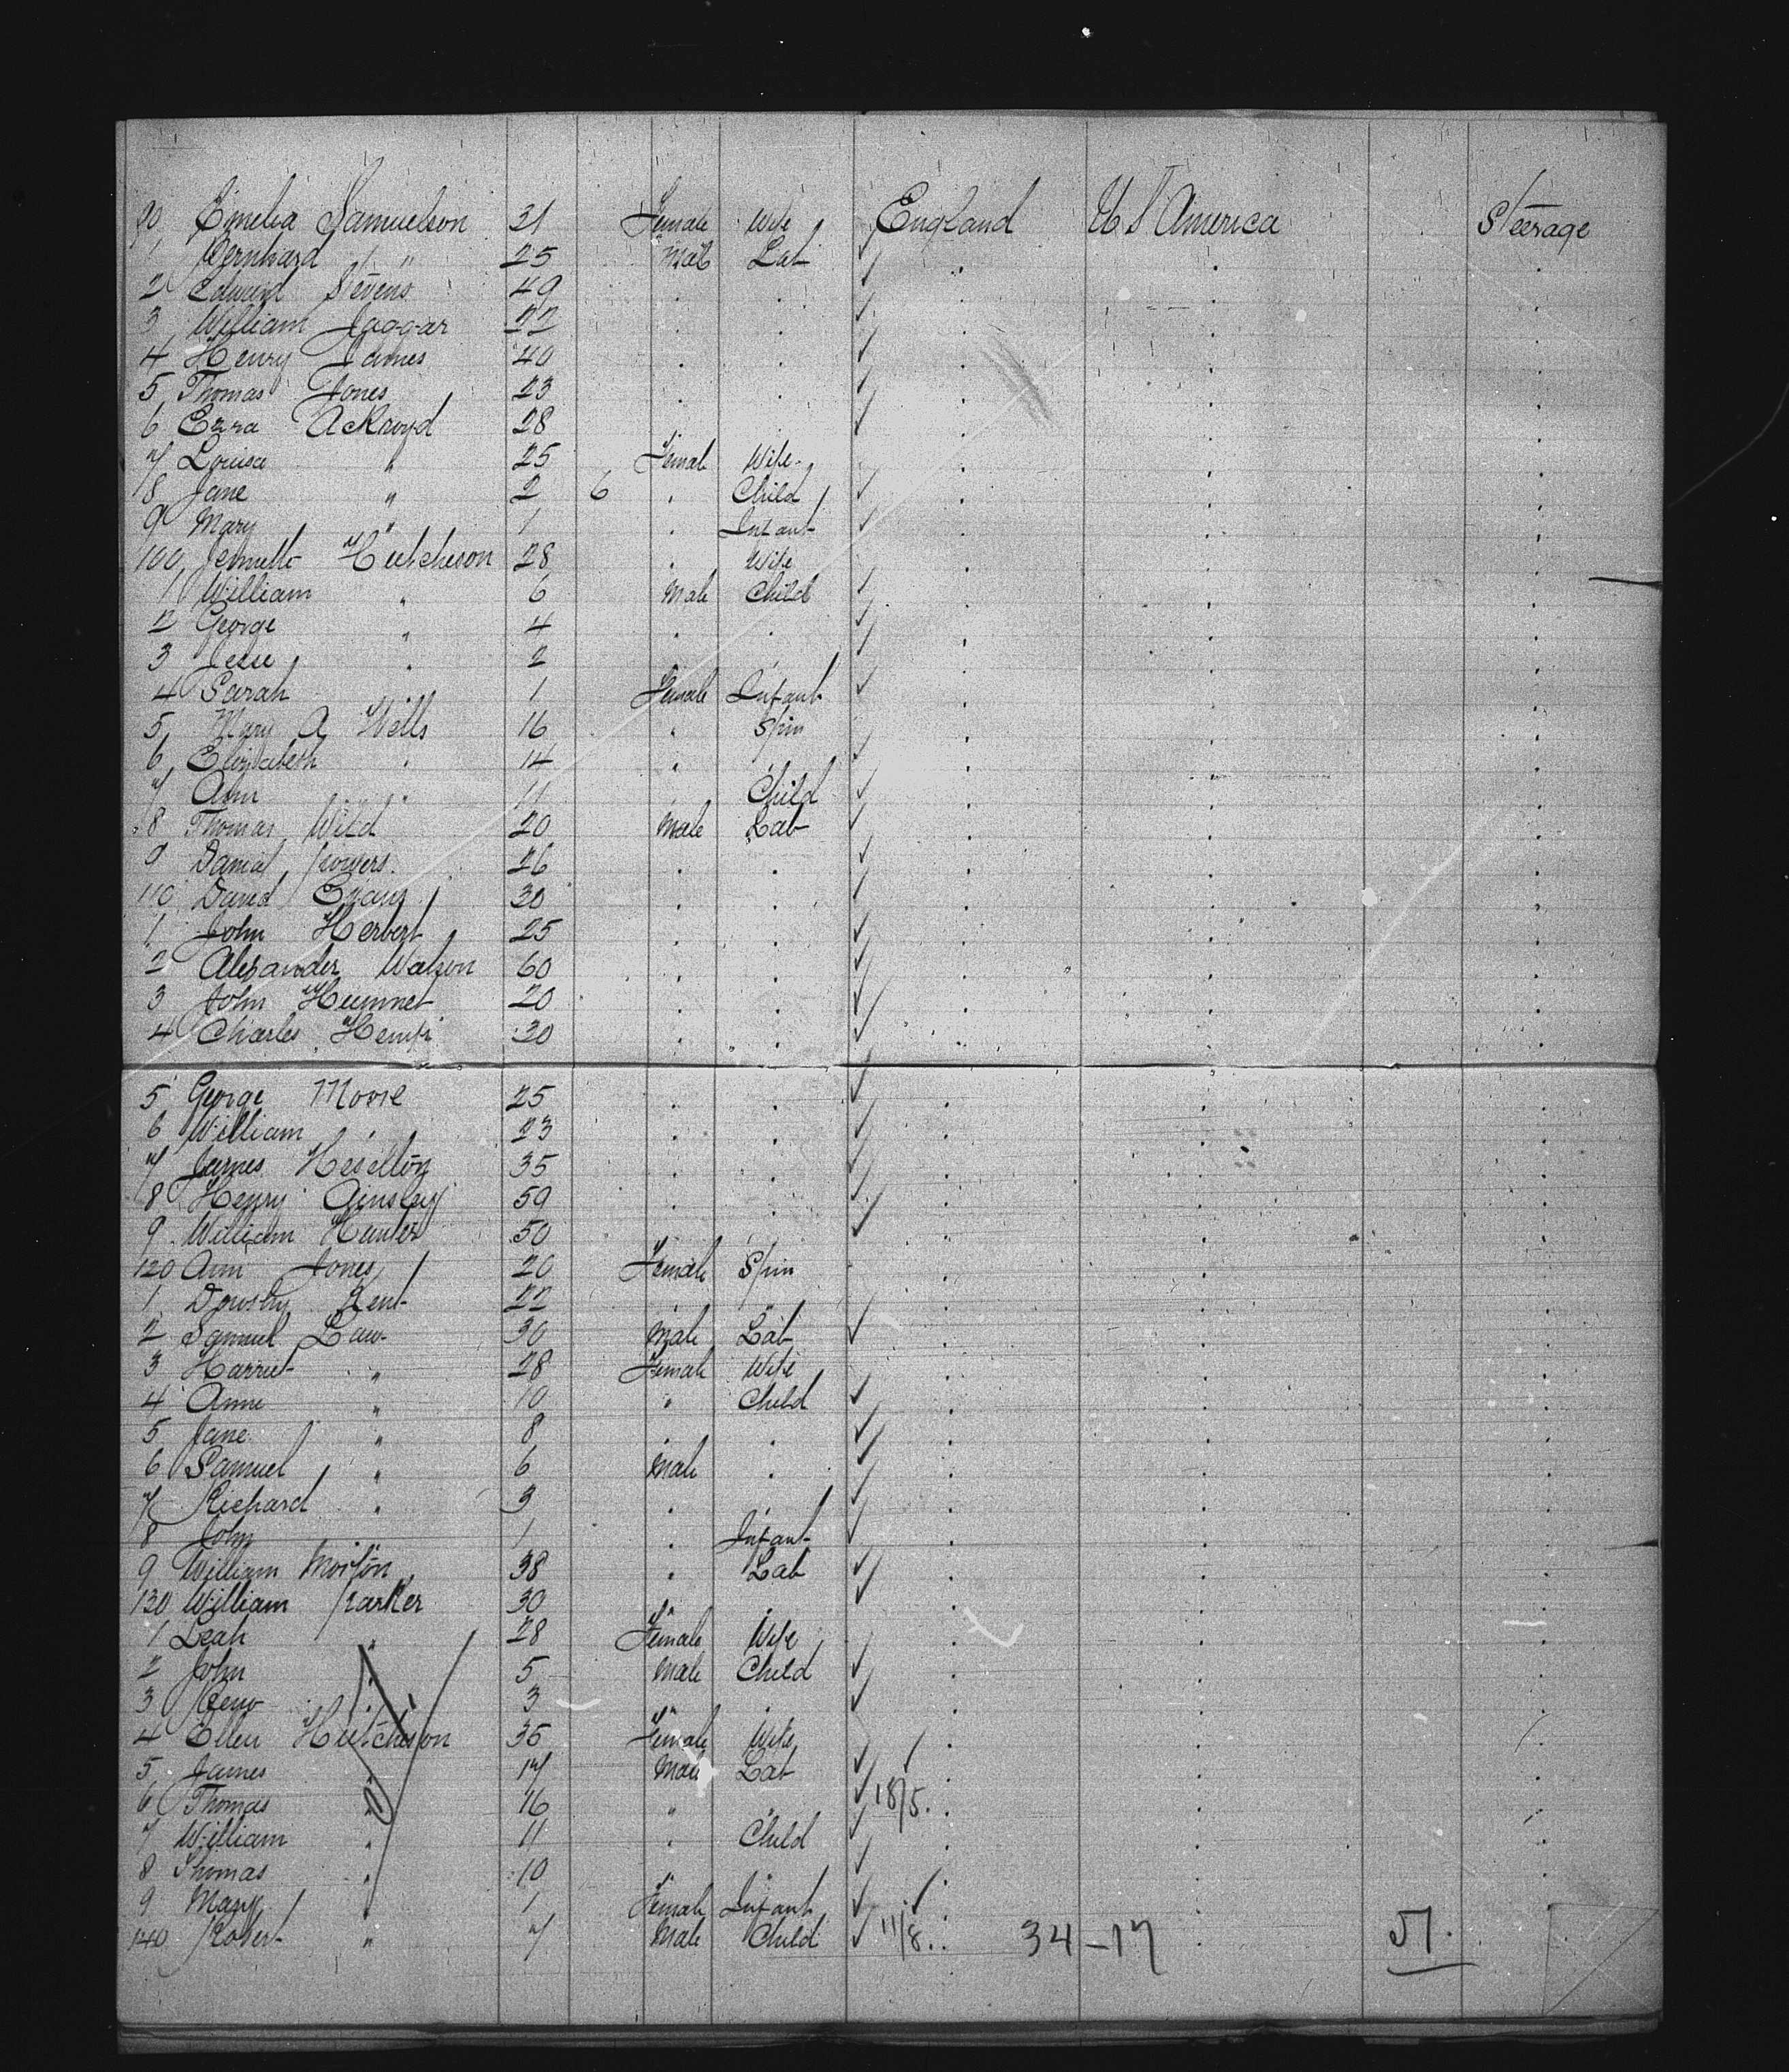 90 Emelia Samuelson 31 Female Wife England U S America Steerage
1 Bernhard " 25 Male Lab
2 Edward Stevens 49
3 William Jaggar 22
4 Henry James 40
5 Thomas Jones 23
6 Ezra Ackroyd 28
7 Louisa " 25 Female Wife
8 Jane " 2 6 Child
9 Mary " 1 Infant
100 Jennette Hutcheson 28 Wife
1 William " 6 Male Child
2 George " 4
3 Jesse " 2
4 Sarah " 1 Female Infant
5 Mary A Wells 16 " Spin
6 Elizabeth " 14 "
7 Ann " 11 Child
8 Thomas Wild 20 Male Lab
9 Daniel Powers 26
110 David Evans 30
1 John Herbert 25
2 Alexander Watson 60
3 John 20
4 Charles 30
5 George Moore 25
6 William " 23
7 James Heselton 35
8 Henry Ainsley 59
9 William Hunter 50
120 Ann Jones 20 Female Spin
1 Kent 22
2 Samuel Law 30 Male Lab
3 Harriet " 28 Female Wife
4 Anne " 10 " Child
5 Jane " 8
6 Samuel " 6 Male
7 Richard " 3
8 John " 1 Infant
9 William Morton 38 " Lab
130 William Parker 30
1 Leah " 28 Female Wife
2 John " 5 Male Child
3 " 3
4 Ellen Hutcheson 35 Female Wife
5 James " 17 Male Lab
6 Thomas " 16 " 18/5
7 William " 11 " Child
8 Thomas " 10
9 Mary " 1 Female Infant
140 Robert " 7 Male Child 11/8 34-17 51